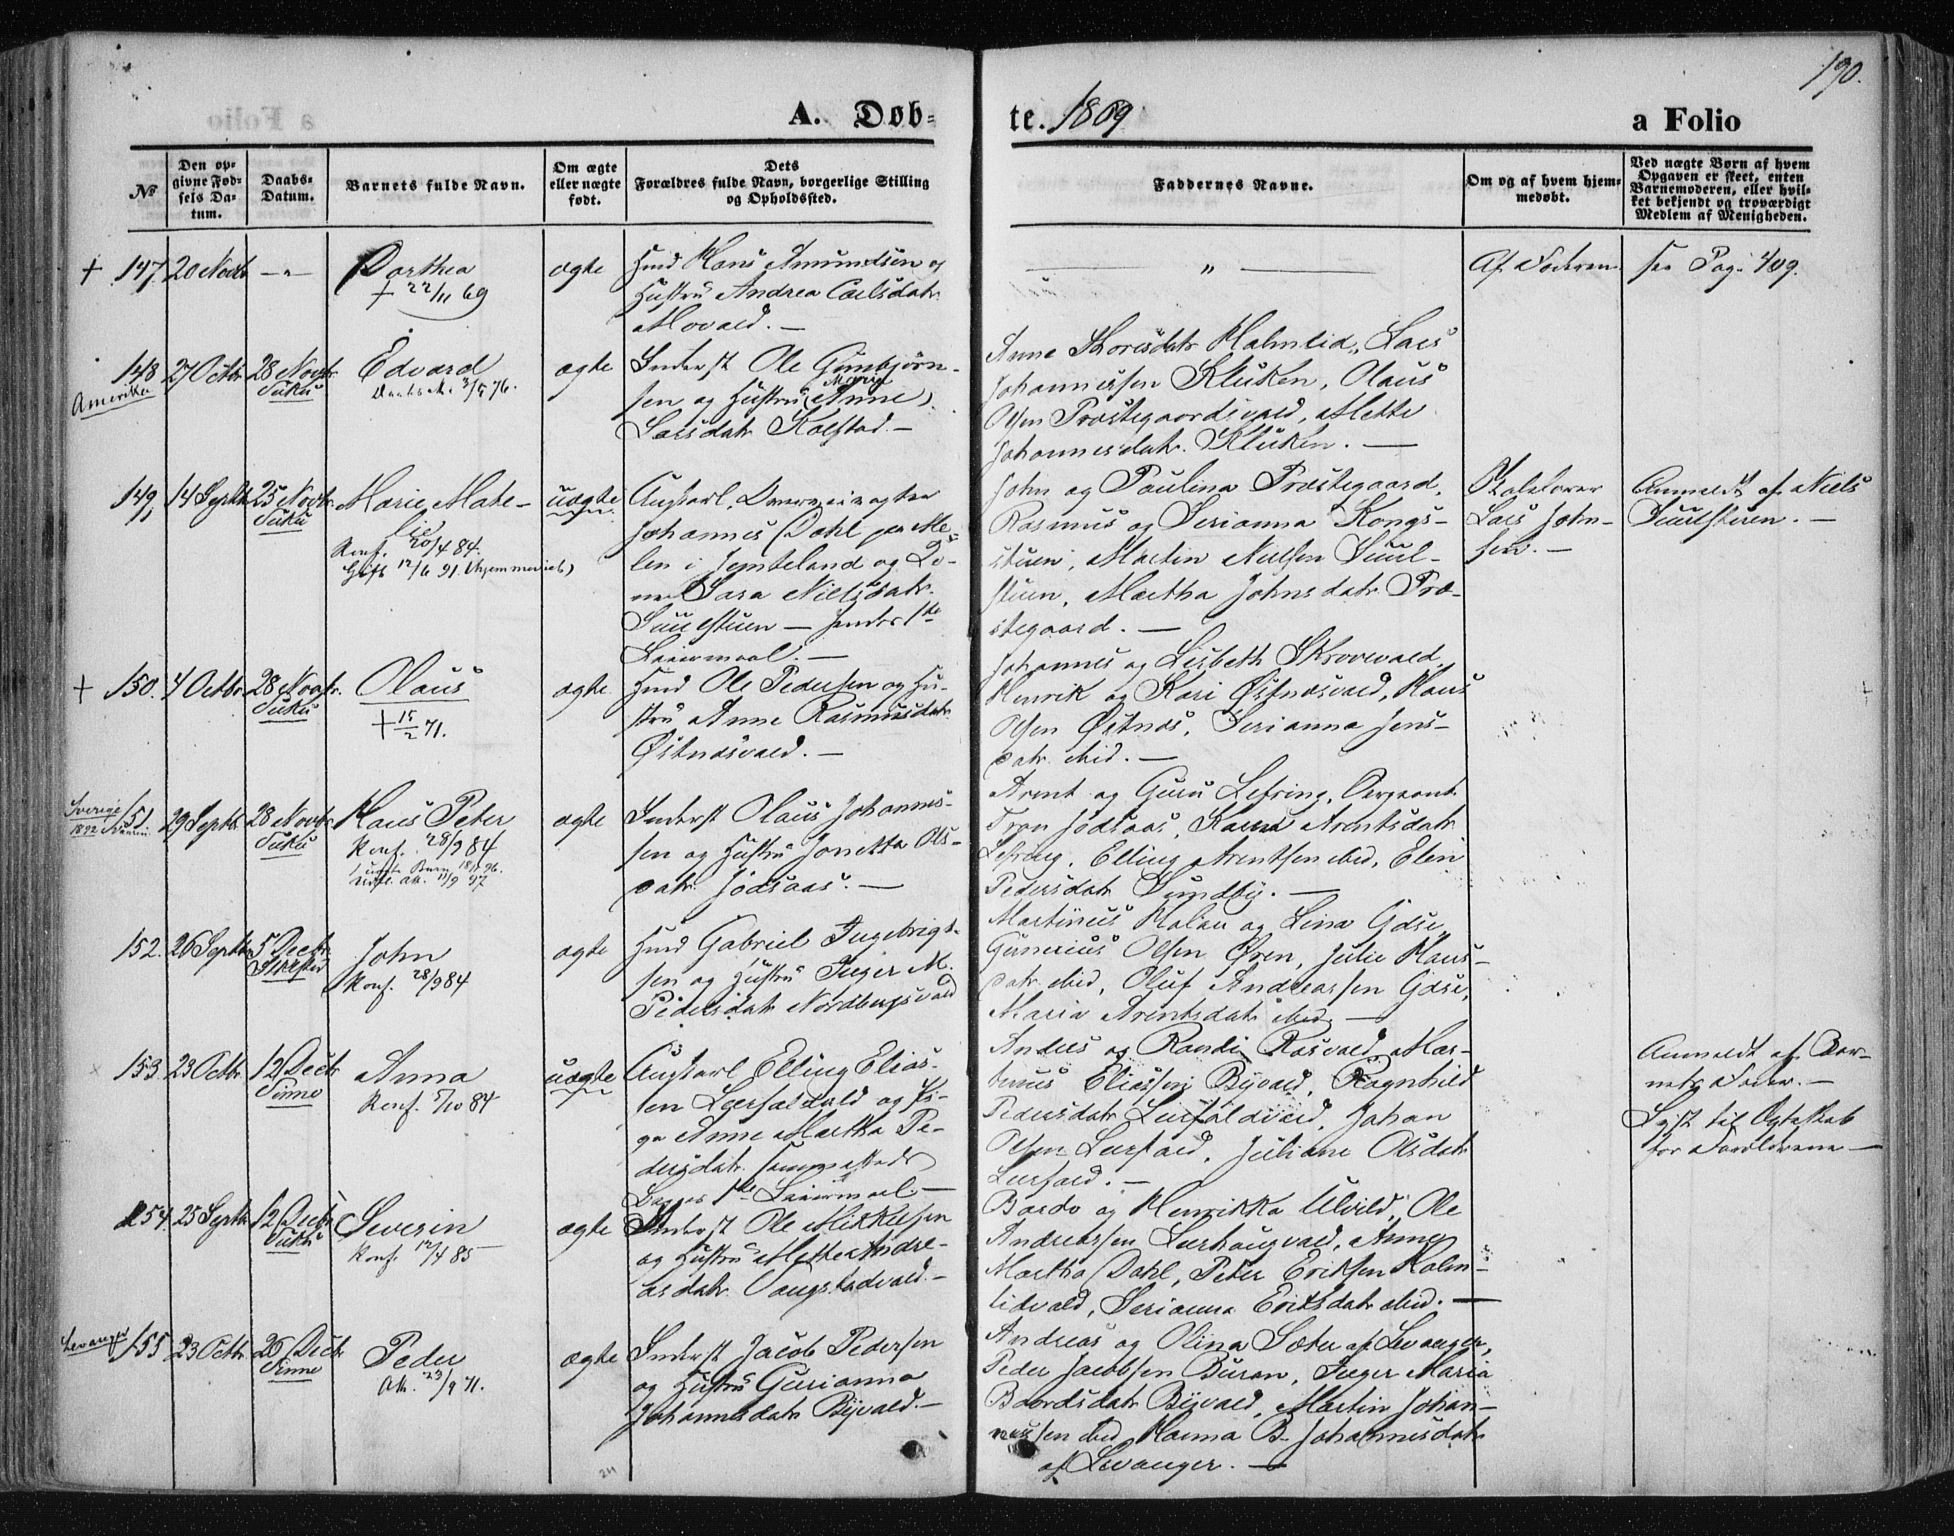 190.
A. Døb-
te. 1869
a Folio
No
Den op-
givne Fød-
sels Da-
tum.
Daabs-
Datum.
Barnets fulde Navn.
Om ægte
eller uægte
født.
Dets
Forældres fulde Navn, borgerlige Stilling
og Opholdssted.
Faddernes Navne.
Om og af hvem hjem-
medøbt.
Ved uægte Børn af hvem
Opgaven er skeet, enten
Barnemoderen, eller hvil-
ket bekjendt og troværdigt
Medlem af Menigheden.
+ 147. 20 Novbr — " —
Dorthea
+ 22/11 69
ægte
Husmd Hans Amundsen og
Hustru Andrea Carlsdatr
Movald. —
— " —
Af Faderen
see Pag. 409.
Amerika
148 27 Octbr 28 Novbr.
Edvard
ægte
Inderst Ole Gunbjørn-
sen og Hustru (Anne)
Marie
Larsdatr Kolstad. —
Anne Thoresdatr Halmlid, Lars
Johannessen Kluken, Olaus
Olsen Præstegaardsvald, Mette
Johannesdatr. Kluken. —
149, 14 Septbr 25 Novbr.
Marie Mathe-
lie
Konf. 20/4 84.
Gift 12/6 91.
uægte
Ungkarl,
Johannes Dahl paa Me-
len i Jemteland og Qvi-
ne Sara Nielsdatr.
Suulstuen — hendes 1ste
Leiermaal. —
John og Paulina Præstegaard,
Rasmus og Serianna Kongs-
stuen, Martin Nielsen Suul-
stuen, Martha Johnsdatr Præ-
stegaard. —
Lars John-
sen. —
Anmeldt af Niels
Suulstuen. —
+ 150. 4 Octbr. 28 Novbr.
Olaus
+ 15/2 71.
ægte
Husmd Ole Pedersen og Hu-
stru Anne Rasmusdatr
Østnæsvald. —
Johannes og Lisbeth Skrovevald,
Henrik og Kari Østnæsvald, Hans
Olsen Østnæs, Serianna Jens-
datr ibid. —
Sverige
1892
151 29 Septbr. 28 Novbr.
Hans Peter
Konf. 28/9 84
ægte
Inderst Olaus Johannes-
sen og Hustru Jonetta Ols-
datr. Jødsaas. —
Arent og Guru Lefring, Sergeant
Tron Jødsaas, Karen Arentsdatr
Lefring, Elling Arentsen ibid, Elen
Pedersdatr Sundby. —
152. 26 Septbr 5 Decbr.
John
Konf. 28/9 84
ægte
Husmd Gabriel Ingebrigt-
sen og Hustru Inger M.
Pedersdatr Nordbergsvald
Martinus Holan og Lina Gdse,
Gunerius Olsen Øren, Julie Hans-
datr ibid, Oluf Andreassen Gdse,
Maria Arentsdatr ibid. —
153. 23 Octbr. 12 Decbr
Anna
Konf. 5/10 84
uægte
Ungkarl Elling Elias-
sen Leerfaldvald og Pi-
ge Anne Martha Pe-
dersdatr. sammesteds
Begges 1ste Leiermaal. —
Anders og Randi Rosvald, Mar-
tinus Eliassen Byvald, Ragnhild
Pedersdatr Leirfaldvald, Johan
Olsen Leerfald, Juliane Olsdatr
Leerfald. —
Anmeldt af Bar-
nets Fader. —
Lyst til Ægteskab
for Forældrene —
154. 25 Septbr. 12 Decbr
Severin
Konf. 12/4 85
ægte
Inderst Ole Mikkelsen
og Hustru Mette Andre-
asdatr. Vangstadvald. —
Bardo og Henrikka Ulvild, Ole
Andreassen Leerhaugvald, Anne
Martha Dahl, Peter Eriksen Halm-
lidvald, Serianna Eriksdatr ibid. —
Levanger
155 23 Octbr. 26 Decbr
Peder
ægte
Inderst Jacob Pedersen
og Hustru Gurianna
Johannesdatr Byvald. —
Andreas og Olina Sæter af Levanger,
Peder Jacobsen Buran, Inger Maria
Baardsdatr Byvald, Martin Johan-
nessen ibid, Hanna B. Johannesdatr
af Levanger. —